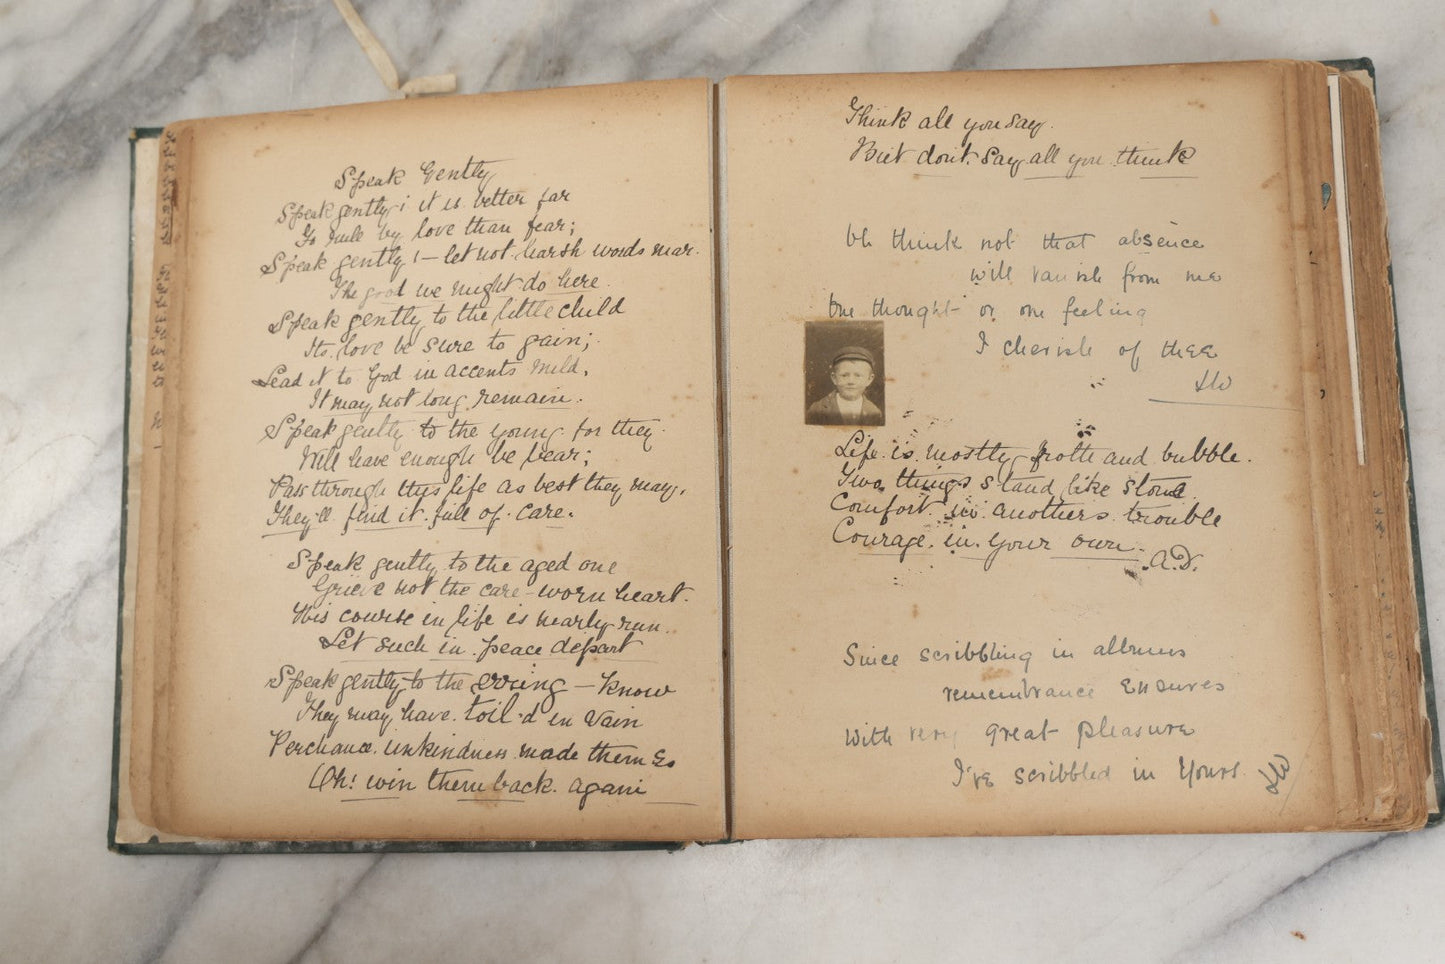 Speak Gently
Speak gently; it is better far
To rule by love than fear;
Speak gently! – let not harsh words mar.
The good we might do here.
Speak gently to the little child
Its love be sure to gain;
Lead it to God in accents mild,
It may not long remain.
Speak gently to the young for they
Will have enough be bear;
Pass through this life as best they may,
They'll find it full of care.
Speak gently to the aged one
Grieve not the care-worn heart.
this course in life is nearly run.
Let such in peace depart
Speak gently to the erring – know
They may have toil'd in vain
Perchance unkindness made them so
Oh! win them back again
Think all you say.
But don't say all you think
Oh think not that absence
will vanish from me
One thought or one feeling
I cherish of thee
Life is mostly froth and bubble.
Two things stand like stone
Comfort in anothers trouble
Courage in your own.
A.D.
Since scribbling in albums
remembrance ensures
With very great pleasure
I've scribbled in Yours.